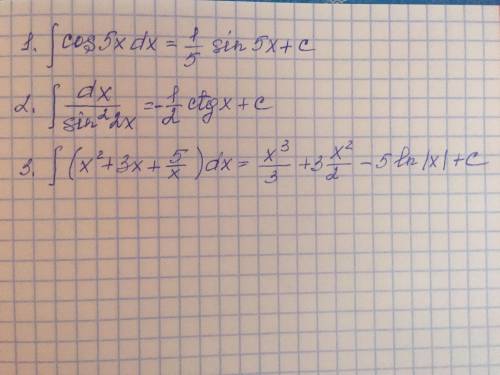 1. ∫cos5x dx = 1/5 sin 5x + c
2. ∫ dx/sin²2x = -1/2 ctg x + c
3. ∫(x² + 3x + 5/x)dx = x³/3 + 3 x²/2 - 5 ln|x| + c